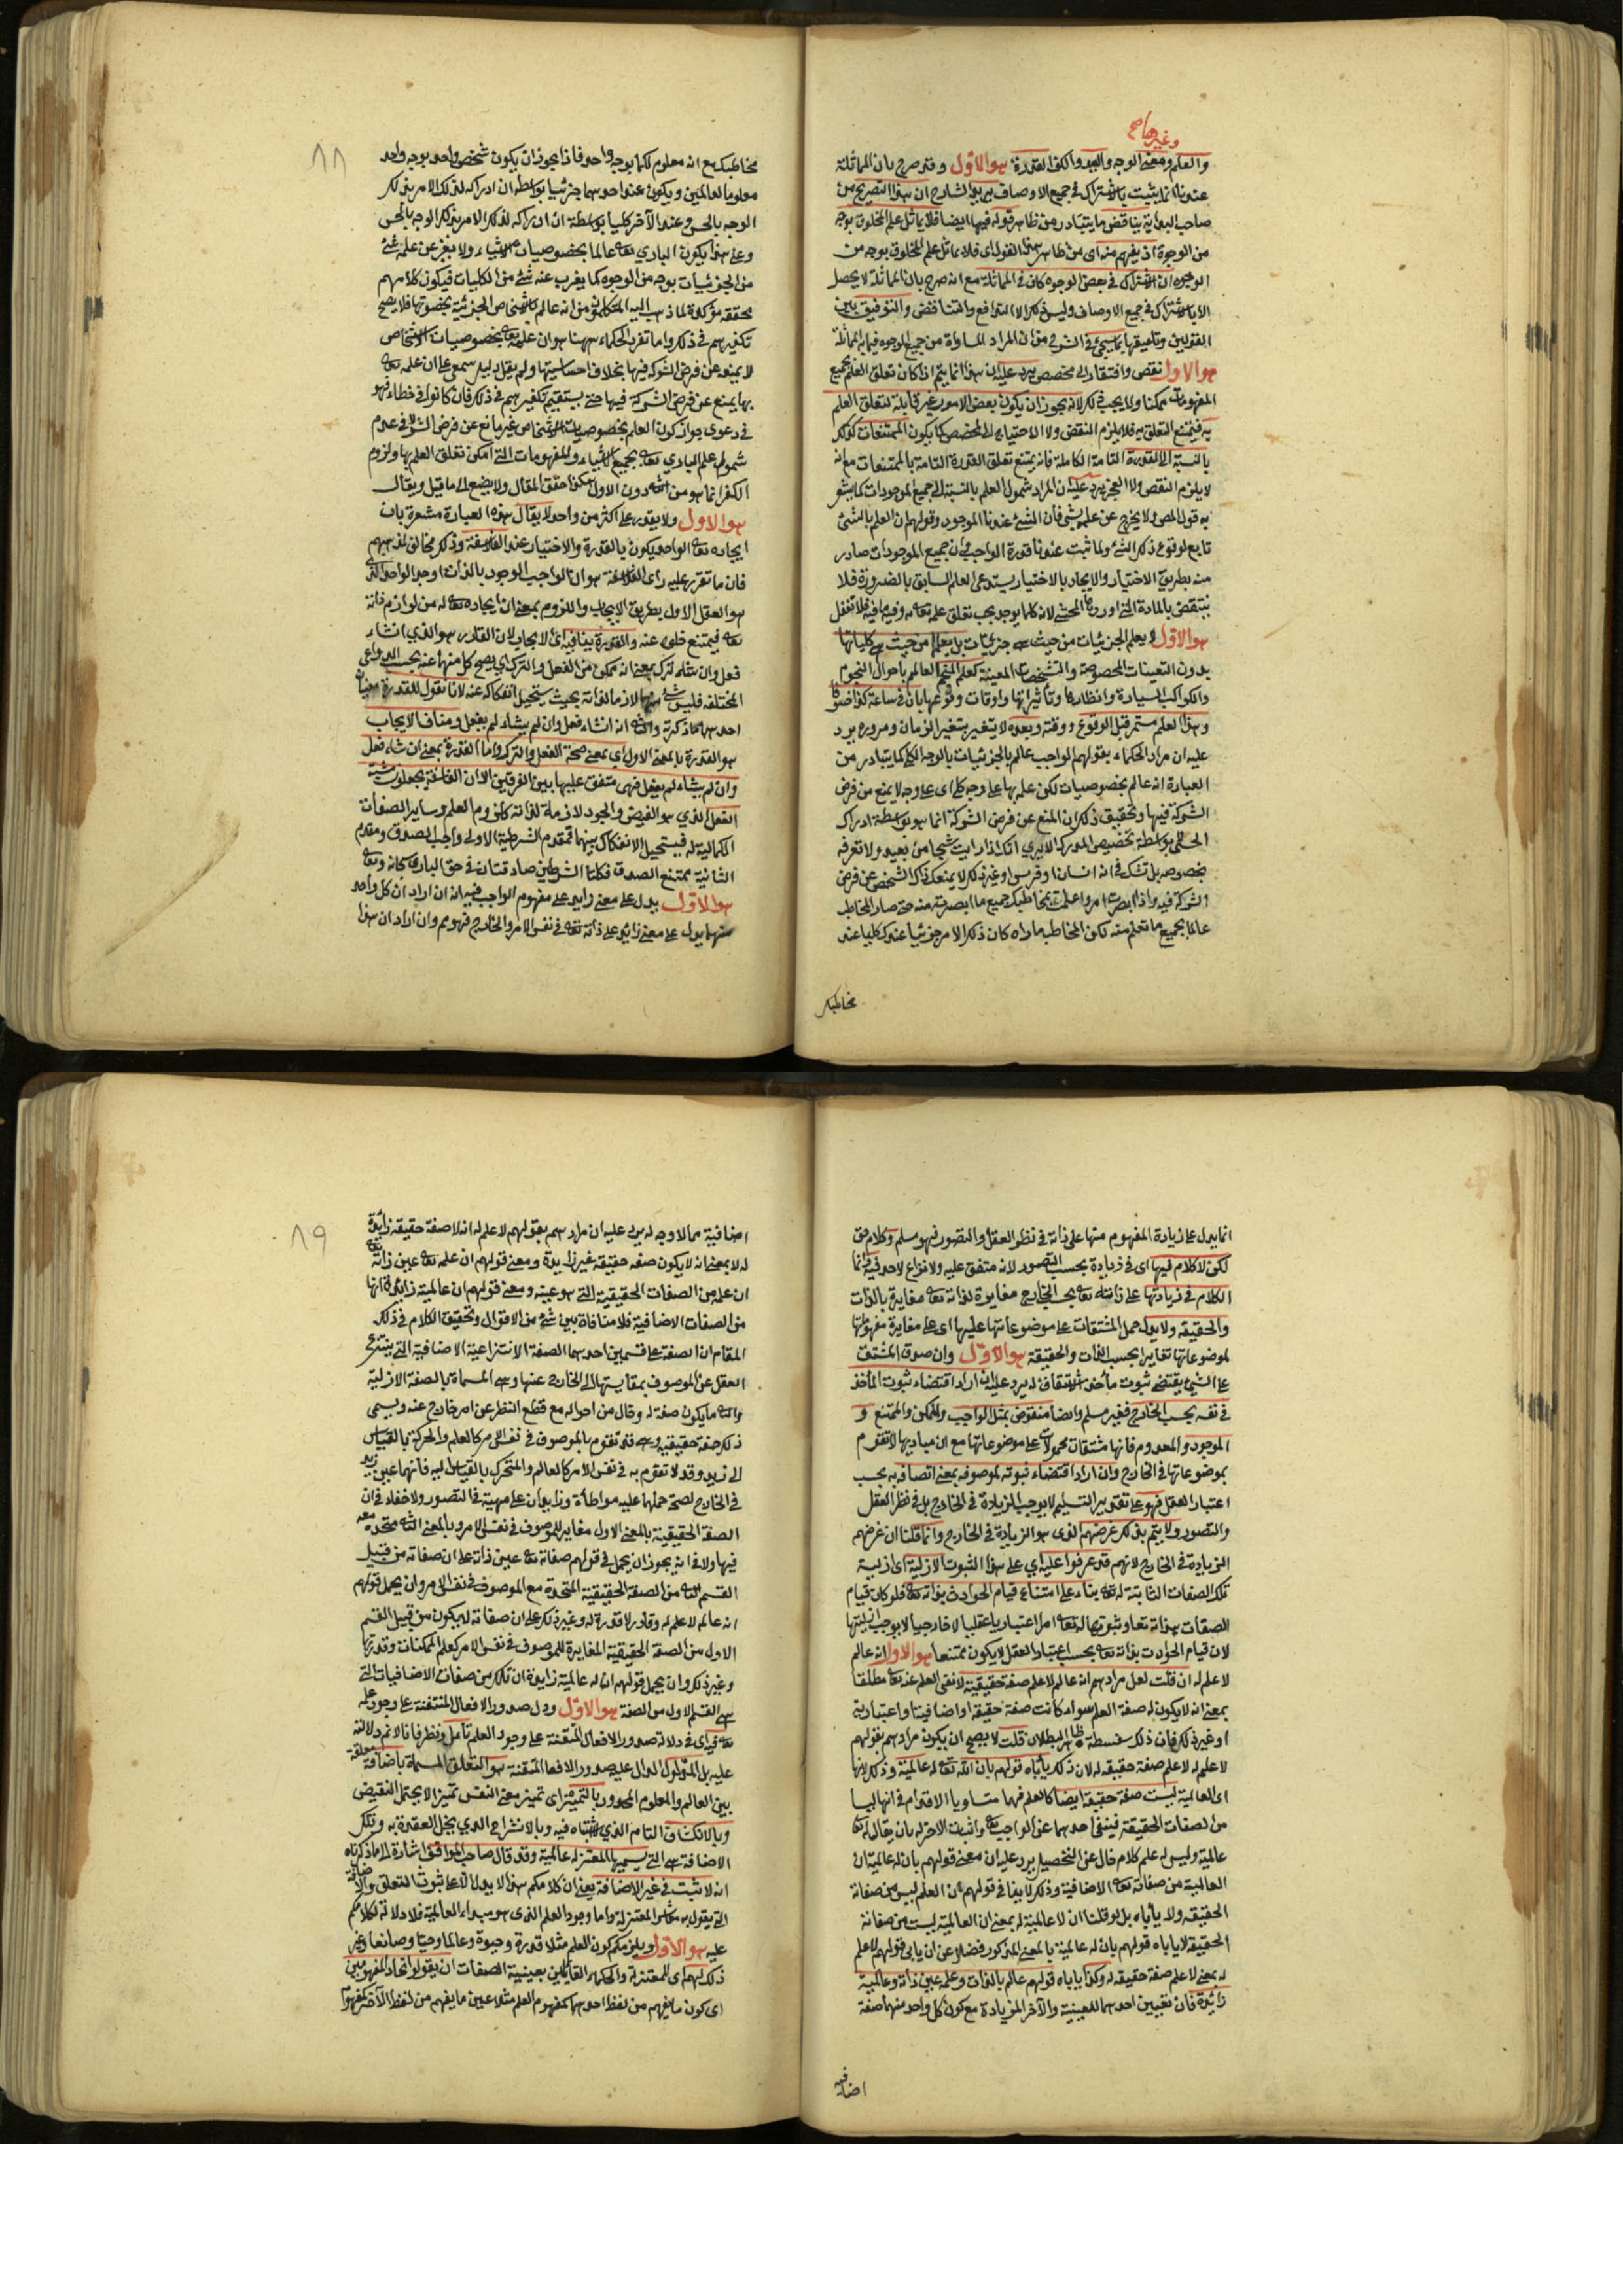 وغيرها صح
والعلم ومعنى الوجه واليد والكف القدرة هو الاول وقد صرح بان المماثلة
عندنا انما يثبت بالاشتراك في جميع الاوصاف يريد الشارح ان هذا التصريح من
صاحب البداية يناقض ما يتبادر من ظاهر قوله فيها ايضا فلا يماثل علم المخلوق بوجه
من الوجوه اذ يفهم منه اى من ظاهر هذا القول اى فلا يماثل علم المخلوق بوجه من
الوجوه ان الاشتراك في بعض الوجوه كاف في المماثلة مع انه صرح بان المماثلة لا يحصل
الا بالاشتراك في جميع الاوصاف وليس ذلك الا التدافع والتناقض والتوفيق بين
القولين وتلفيقها بما سيجئ في الشرح من ان المراد المساواة من جميع الوجوه فيما به المماثلة
هو الاول نقص وافتقار الى مخصص يرد عليه ان هذا انما يتم اذا كان تعلق العلم بجميع
المفهومات ممكنا ولما يجب ذلك لانه يجوز ان يكون بعض الامور غير قابلة لتعلق العلم
به فيمتنع التعلق به فلا يلزم النقص ولا الاحتياج الى المخصص كما يكون الممتنعات كذلك
بالنسبة الى القدرة التامة الكاملة فانه يمتنع تعلق القدرة التامة بالممتنعات مع انه
لا يلزم النقص ولا العجز يرد عليه ان المراد شمول العلم بالنسبة الى جميع الموجودات كما يشعر
به قول المص ولا يخرج عن علمه شئ فان الشئ عندنا الموجود وقولهم ان العلم بالشئ
تابع لوقوع ذلك الشئ ولما ثبت عندنا قدرة الواجب في ان جميع الموجودات صادر
منه بطريق الاختيار والايجاد بالاختيار يستدعى العلم السابق بالضرورة فلا
ينتقض بالمادة التى اوردها المحشى لانه كلما يوجد يجب تعلق علمه تعالى به وفيه ما فيه فلا تغفل
هو الاول لا يعلم الجزئيات من حيث هى جزئيات بل يعلم من حيث هى كلياتها
بدون التعينات المخصوصة والتشخصات المعينة كعلم المنجم العالم باحوال النجوم
والكواكب السيارة وانظارها وتأثيراتها واوقات وقوعها بان في ساعة كذا خسوفا
وهذا العلم مستمر قبل الوقوع ووقته وبعده لا يتغير بتغير الزمان ومروره يرد
عليه ان مراد الحكماء بقولهم الواجب عالم بالجزئيات بالوجه الكلى كما يتبادر من
العبارة انه عالم بخصوصيات لكن علمه بها على وجه كلى اى على وجه لا يمنع من فرض
الشركة فيها وتحقيق ذلك ان المنع عن فرض الشركة انما هو بواسطة ادراك
الحسى لا بواسطة تخصيص المدرك الا يرى انك اذا رايت شبحا من بعيد ولا تعرفه
بخصوصه بل تشك في انه انسان او فرس او غير ذلك لا يمنعك ذاك الشخص عن فرض
الشركة فيه واذا ابصرت امرا واعلمت بمخاطبك جميع ما ابصرته منه حتى صار المخاطب
عالما بجميع ما تعلم منه لكن المخاطب ما راه كان ذلك الامر جزئيا عندك كليا عند
مخاطبك
٨٨
مخاطبك مع انه معلوم لكما بوجه واحد فاذا يجوز ان يكون شخص واحد بوجه واحد
معلوما لعالمين ويكون عند احدهما جزئيا بواسطة ان ادراكه لذلك الامر بذلك
الوجه بالحس وعند الآخر كليا بواسطة ان ادراكه لذلك الامر بذلك الوجه لا بالحس
وعلى هذا يكون البارى تعالى عالما بخصوصيات الاشياء ولا يعزب عن علمه شئ
من الجزئيات بوجه من الوجوه كما يعزب عنه شئ من الكليات فيكون كلامهم
محققه مؤكدة لما ذهب اليه المتكلمون من انه عالم بالاشخاص الجزئية بخصوصها فلا يصح
تكفيرهم في ذلك واما تفرد الحكماء ههنا هو ان علمه تعالى بخصوصيات الاشخاص
لا يمنع عن فرض الشركة فيها بخلاف احساسيتها ولم يقل دليل سمعى على ان علمه تعالى
بها يمنع عن فرض الشركة فيها حتى يستقيم تكفيرهم في ذلك فان كانوا في خطاء فهو
في دعوى جواز كون العلم بخصوصيات الاشخاص غير مانع عن فرض الشركة لا في عدم
شمول علم البارى تعالى بجميع الاشياء والمفهومات التى امكن تعلق العلم بها ولزوم
الكفر انما هو من الثانى دون الاول هكذا حقق المقال ولا يضيع الى ما قيل ويقال
هو الاول ولا يقدر على اكثر من واحد لا يقال هذه العبارة مشعرة بان
ايجاده تعالى الواحد يكون بالقدرة والاختيار عند الفلاسفة وذلك مخالف لمذهبهم
فان ما تقرر عليه راى الفلاسفة هو ان الواجب الموجود بالذات اوجد الواحد الذى
هو العقل الاول بطريق الايجاب واللزوم بمعنى ان ايجاده تعالى له من لوازم ذاته
تعالى فيمتنع خلوه عنه والقدرة ينافيه اى الايجاب لان القادر هو الذى ان شاء
فعل وان شاء ترك بمعنى انه تمكن من الفعل والترك اى يصح كل منهما عنه بحسب الدواعى
المختلفة فليس شئ منهما لازما لذاته بحيث يستحيل انفكاكه عنه لانا نقول للقدرة معنيان
احدهما ما ذكرته والثانى انه ان شاء فعل وان لم يشاء لم يفعل ومنافى الايجاب
هو القدرة بالمعنى الاول اى بمعنى صحة الفعل والترك واما القدرة بمعنى ان شاء فعل
وان لم يشاء لم يفعل فهى متفق عليها بين الفرقين الا ان الفلاسفة يجعلون مشية
الفعل الذى هو الفيض والجود لازمة لذاته كلزوم العلم وساير الصفات
الكمالية له فيستحيل الانفكاك بينهما فمقدم الشرطية الاولى واجب الصدق ومقدم
الثانية ممتنع الصدق فكلتا الشرطيتين صادقتان في حق البارى سبحانه وتعالى
هو الاول يدل على معنى زايد على مفهوم الواجب فيه ان ان اراد ان كل واحد
منهما يدل على معنى زائد على ذاته تعالى في نفس الامر والخارج فهو مم وان اراد ان هذا
انما يدل على زيادة المفهوم منها على ذاته في نظر العقل والتصور فهو مسلم وكلام حق
لكن لا كلام فيها اى في زيادة بحسب التصور لانه متفق عليه ولا نزاع لاحد فيه وانما
الكلام في زيادتها على ذاته تعالى بحسب الخارج مغايرة لذاته تعالى مغايرة بالذات
والحقيقة ولا يدل حمل المشتقات على موضوعاتها عليها اى على مغايرة مفهوماتها
لموضوعاتها تغايرا بحسب الذات والحقيقة هو الاول وان صدق المشتق
على الشئ يقتضى ثبوت مأخذ الاشتقاق له يرد عليه ان اراد اقتضاء ثبوت المأخذ
في نفسه بحسب الخارج فغير مسلم وايضا منقوض بمثل الواجب والممكن والممتنع و
الموجود والمعدوم فانها مشتقات محمولات على موضوعاتها مع ان مباديها لا تقوم
بموضوعاتها في الخارج وان اراد اقتضاء ثبوته لموصوفه بمعنى اتصافه به بحسب
اعتبار العقل فهو على تقدير التسليم لا يوجب الزيادة في الخارج بل في نظر العقل
والتصور ولا يتم بذلك غرضهم الذى هو الزيادة في الخارج وانما قلنا ان غرضهم
الزيادة في الخارج لانهم قد عرفوا عليه اى على هذا الثبوت الازلية اى ازلية
تلك الصفات الثابتة له تعالى بناء على امتناع قيام الحوادث بذاته تعالى فلو كان قيام
الصفات بذاته تعالى وثبوتها له تعالى امرا اعتباريا عقليا لا خارجيا لا يوجب ازليتها
لان قيام الحوادث بذاته تعالى بحسب اعتبار العقل لا يكون ممتنعا هو الاول انه عالم
لا علم له ان قلت لعل مرادهم انه عالم لا علم صفة حقيقية لا نفى العلم عنه تعالى مطلقا
بمعنى انه لا يكون له صفة العلم سواء كانت صفة حقيقة او اضافية او اعتبارية
او غير ذلك فان ذلك سفسطة ظاهر البطلان قلت لا يصح ان يكون مرادهم بقولهم
لا علم له لا علم صفة حقيقة له لان ذلك يأباه قولهم بان الله تعالى له عالمية وذلك لانها
اى العالمية ليست صفة حقيقة ايضا كالعلم فهما متساويا الاقدام في انهما ليسا
من الصفات الحقيقة فينفى احدهما عن الواجب تعالى واثبات الاخر له بان يقال له تعالى
عالمية وليس له علم كلام خال عن التحصيل يرد عليه ان معنى قولهم بان له عالمية ان
العالمية من صفاته تعالى الاضافية وذلك لا ينافى قولهم بان العلم ليس من صفاته
الحقيقه ولا يأباه بل لو قلنا ان لا عالمية له بمعنى ان العالمية ليست من صفاته
الحقيقة لا ياباه قولهم بان له عالمية بالمعنى المذكور فضلا عن ان يابى قولهم لا علم
له بمعنى لا علم صفة حقيقه له وكذا ياباه قولهم عالم بالذات وعلمه عين ذاته وعالمية
زائدة فان تعيين احدهما للعينية والآخر للزيادة مع كون كل واحد منهما صفة
اضافية
٨٩
اضافية مما لا وجه له يرد عليه ان مرادهم بقولهم لا علم له انه لا صفة حقيقه زائدة
له لا بمعنى انه لا يكون صفه حقيقه غير زايدة ومعنى قولهم ان علمه تعالى عين ذاته تعالى
ان علمه من الصفات الحقيقية التى هو عينه ومعنى قولهم ان عالمية زائدة انها
من الصفات الاضافية فلا منافاة بين شئ من الاقوال وتحقيق الكلام في ذلك
المقام ان الصفة على قسمين احدهما الصفة الانتزاعية الاضافية التى ينتزع
العقل عن الموصوف بمقايستها الى الخارج عنها وهى المسماة بالصفة الازلية
والثانى ما يكون صفة له وقال من احواله مع قطع النظر عن امر خارج عنه ويسمى
ذلك صفة حقيقيه وهى قد تقوم بالموصوف في نفس الامر كالعلم والحركة بالقياس
الى زيد وقد لا تقوم به في نفس الامر كالعالم والمتحرك بالقياس اليه فانهما عين زيد
في الخارج لصحة حملهما عليه مواطأة وزايدان على مهية في التصور ولا خفاء في ان
الصفة الحقيقية بالمعنى الاول مغاير للموصوف في نفس الامر وبالمعنى الثانى متحدة معه
فيها ولا في انه يجوز ان يحمل في قولهم صفاته تعالى عين ذاته على ان صفاته من قبيل
القسم الثانى من الصفة الحقيقية المتحدة مع الموصوف في نفس الامر وان يحمل قولهم
انه عالم لا علم له وقادر لا قدرة له وغير ذلك على ان صفاته له يكون من قبيل القسم
الاول من الصفة الحقيقية المغايرة للموصوف في نفس الامر كعلم الممكنات وقدرتها
وغير ذلك وان يحمل قولهم ان له عالمية زايدة ان تلك من صفات الاضافيات التى
هى القسم الاول من الصفة هو الاول ودل صدور الافعال المتقنة على وجود علمه
تعالى فيه اى في دلالة صدور الافعال المتقنة على وجود العلم تأمل ونظر فانا لا نم دلالته
عليه بل المدلول الدال عليه صدور الافعال المتقنة هو التعلق المسماة باضافة متعلقة
بين العالم والمعلوم المحدود بالتمييز اى تميز معنى النفس تميزا لا يحتمل النقيض
وبالانكشاف التام الذى لا اشتباه فيه وبالانشراح الذى يحل العقدة به وتلك
الاضافة هى التى يسميها المعتزلة عالمية وقد قال صاحب المواقف اشارة الى ما ذكرناه
انه لا ثبت في غير الاضافة يعنى ان كلامكم هذا لا يدل الا على ثبوت التعلق والاضافة
التى يقول به معاشر المعتزلة واما وجود العلم الذى هو مبداء العالمية فلا دلالة لكلامكم
عليه هو الاول ويلزمكم كون العلم مثلا قدرة وحيوة وعالما وحيا وصانعا وغير
ذلك لهم اى للمعتزلة والحكماء القايلين بعينية الصفات ان يقولوا اتحاد المفهومين
اى كون ما يفهم من لفظ احدهما كمفهوم العلم مثلا عين ما يفهم من لفظ الآخر كمفهوم